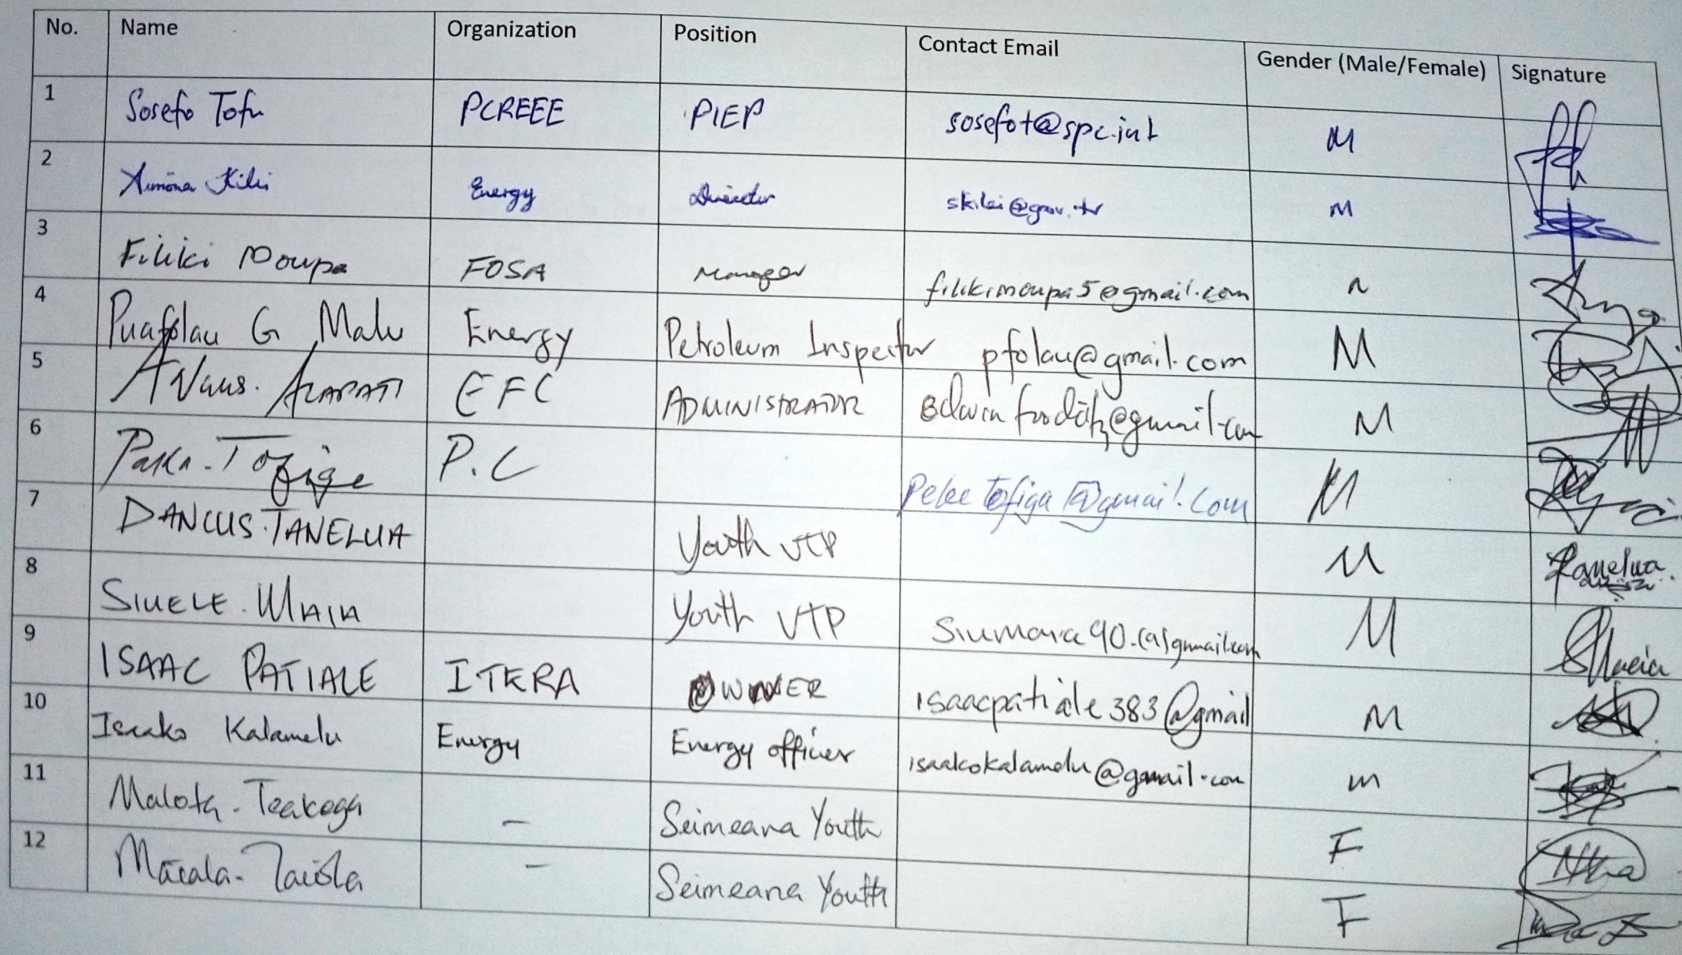 No. Name Organization Position Contact Email Gender (Male/Female) Signature
1 Sosefo Tofu PCREEE PIEP sosefot@spc.int M
2 Simona Kilei Energy Director skilei@gov.tv M
3 Filiki Moupa FOSA Manager filikimoupa5@gmail.com M
4 Puafolau G Malu Energy Petroleum Inspector pfolau@gmail.com M
5 EFC ADMINISTRATOR M
6 Tofiga P.C M
7 DANCUS. TANELUA Youth VTP M Tanelua.
8 SIUELE. Youth VTP M
9 ISAAC PATIALE ITERA OWNER isaacpatiale383@gmail M
10 Isaako Kalamelu Energy Energy officer isaakokalamelu@gmail.com m
11 - Seimeana Youth F
12 - Seimeana Youth F